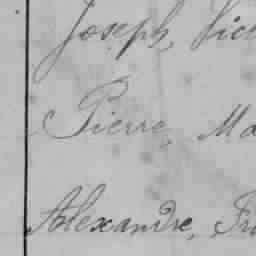 Joseph, Vic
Pierre, Ma
Alexandre, Fr